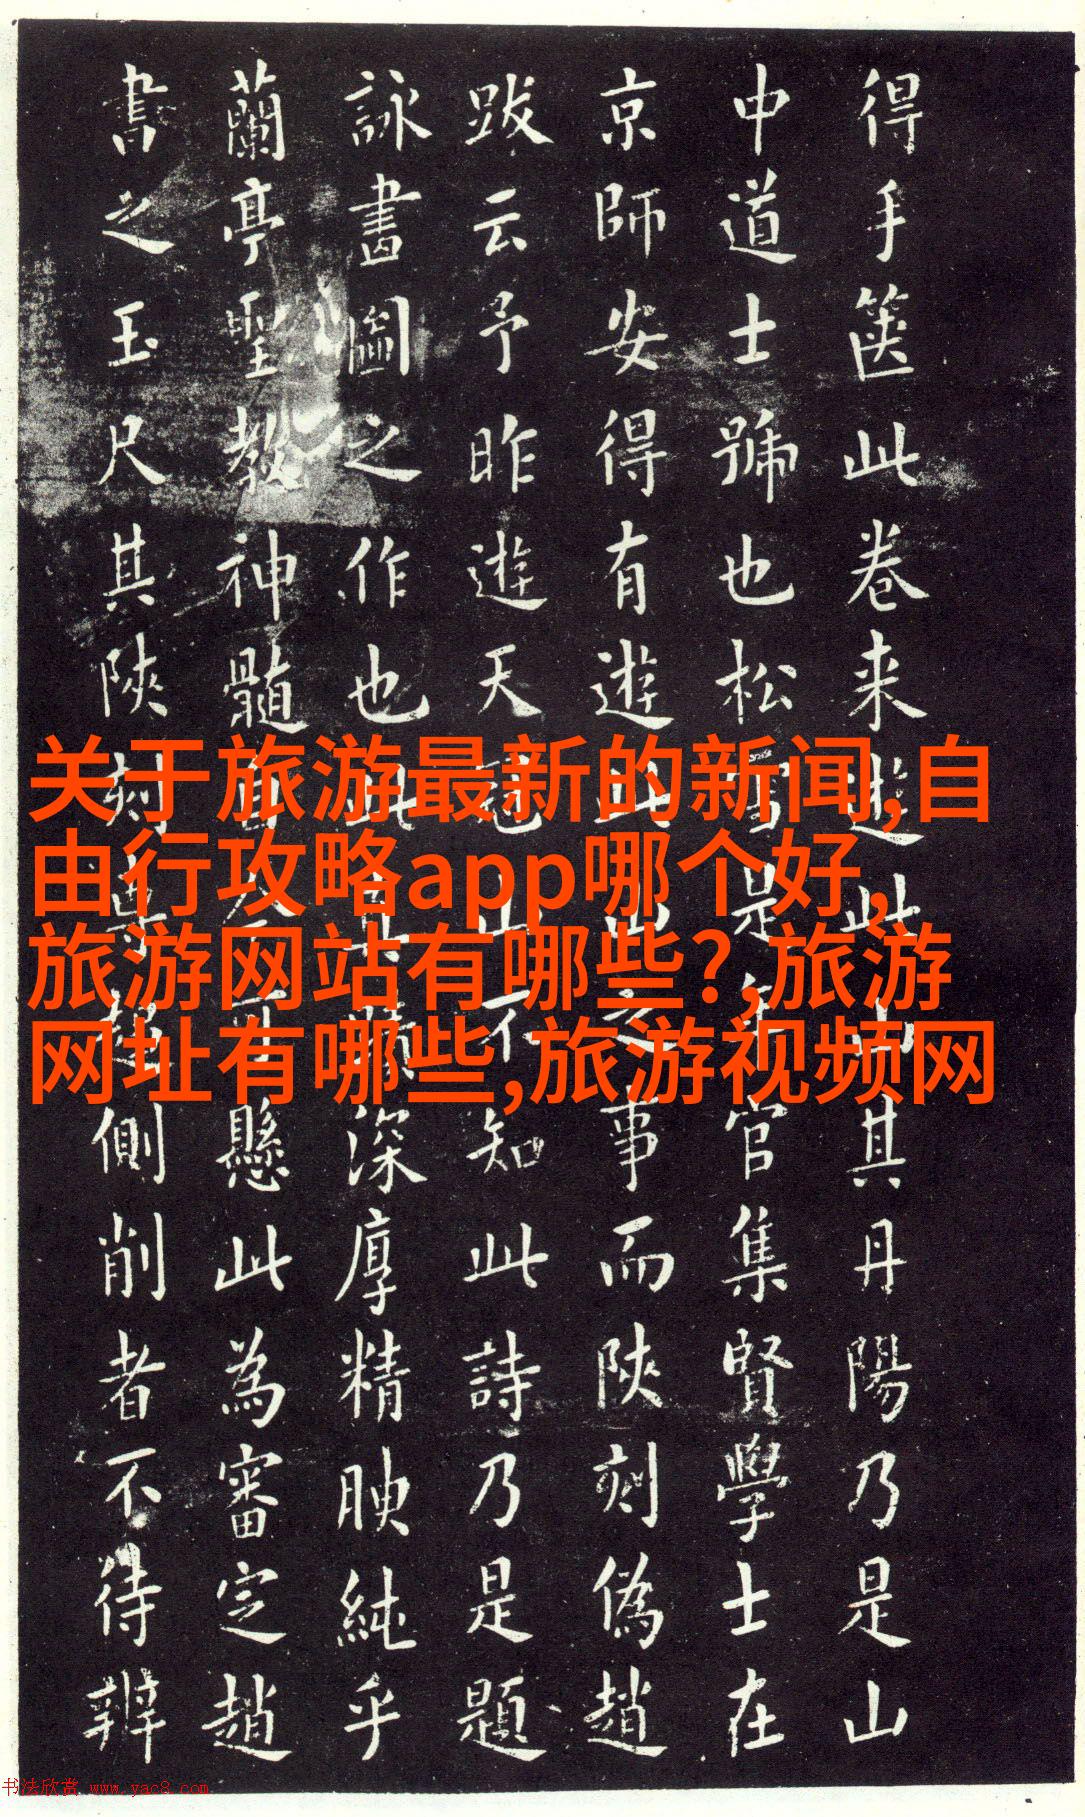 得手箧此卷来遊此山其丹陽乃是山
中道士號也松雪是年官集賢學士在
京師安得有遊此山之事而陝刻偽趙
跋云予昨遊天冠山不知此詩乃是題
詠畫圖之作也此真深厚精腴純乎
蘭亭聖教神髓可懸此為審定趙
書之玉尺其陝刻側削者不待辨
关于旅游最新的新闻,自
由行攻略app哪个好,
旅游网站有哪些?,旅游
网址有哪些,旅游视频网
书法欣赏 www.yac8.com